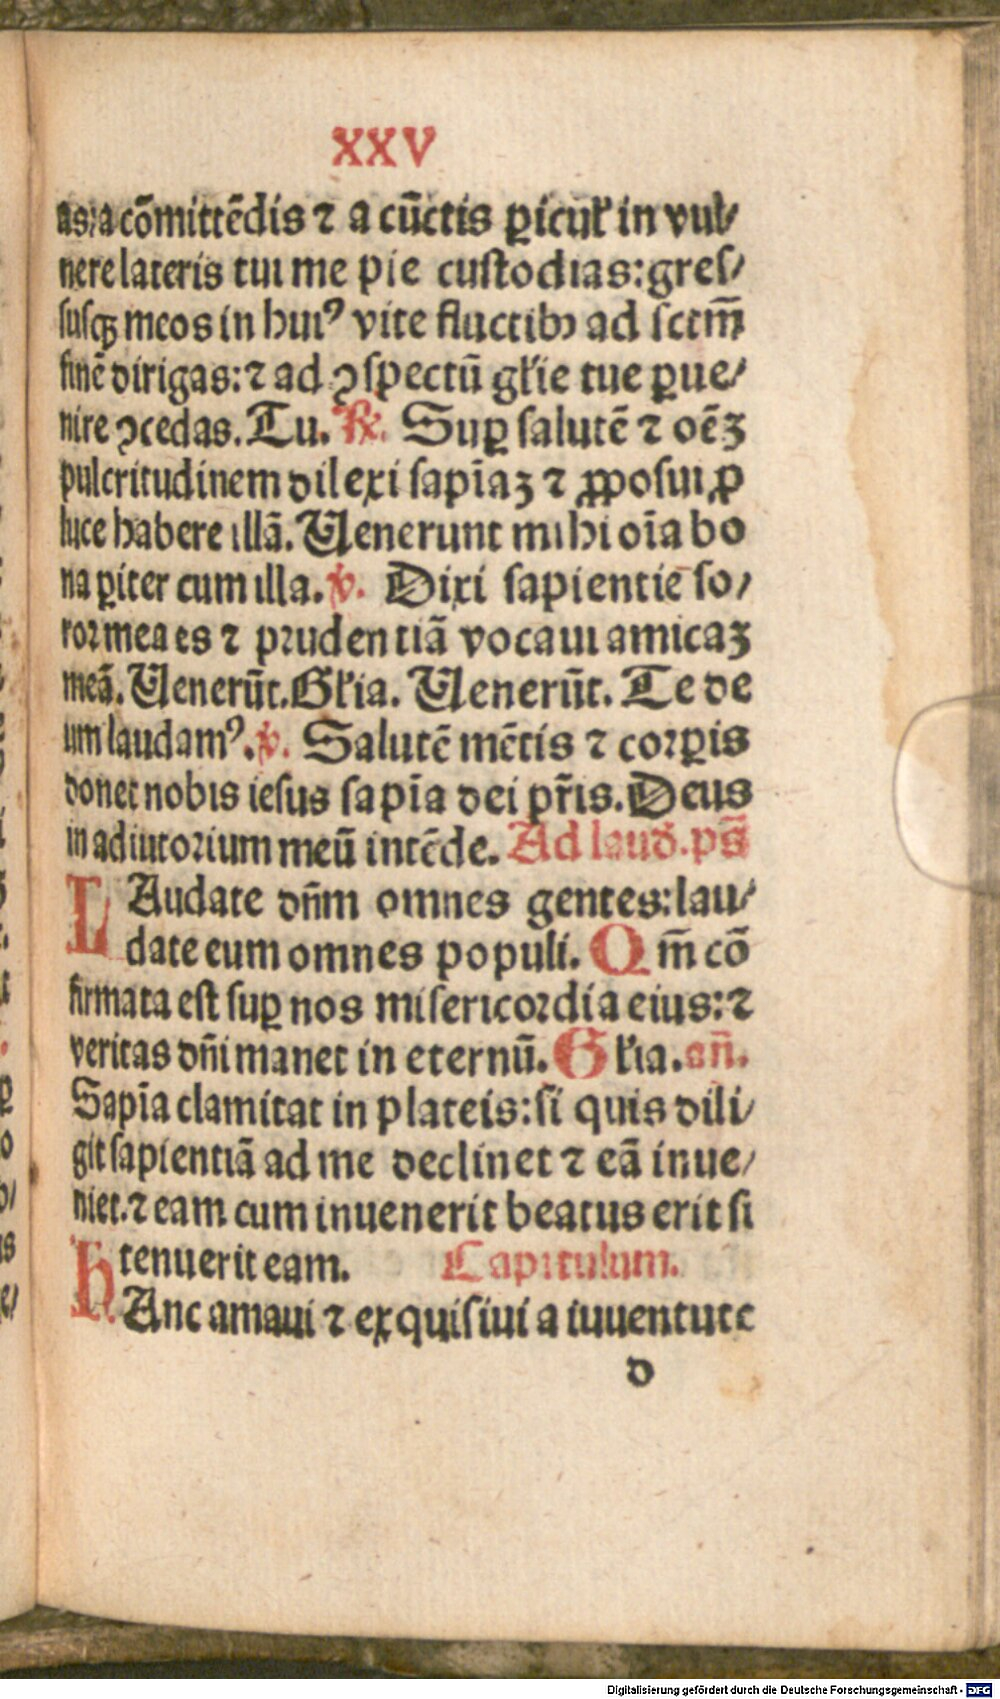 XXV
as: a cōmittēdis ⁊ a cūctis ꝑicul̛ in vul⸗
nere lateris tui me pie custodias: gres⸗
susqꝫ meos in huiꝰ vite fluctibꝫ ad sctm̄
finē dirigas: ⁊ ad ꝯspectū gl̛ie tue ꝑue⸗
nire ꝯcedas. Tu. ℞. Suꝑ salutē ⁊ oēꝫ
pulcritudinem dilexi sapiāꝫ ⁊ ꝓposui ꝓ
luce habere illā. Venerunt mihi oīa bo
na ꝑiter cum illa. ℣. Dixi sapientie so⸗
ror mea es ⁊ prudentiā vocaui amicaꝫ
meā. Venerūt. Gl̛ia. Venerūt. Te de
um laudamꝰ. ℣. Salutē mētis ⁊ corꝑis
donet nobis iesus sapīa dei pr̄is. Deus
in adiutorium meū intēde. Ad laud̛. ps̄
LAudate dn̄m omnes gentes: lau⸗
date eum omnes populi. Qm̄ cō
firmata est suꝑ nos misericordia eius: ⁊
veritas dn̄i manet in eternū. Gl̛ia. an̄.
Sapīa clamitat in plateis: si quis dili⸗
git sapientiā ad me declinet ⁊ eā inue⸗
niet. ⁊ eam cum inuenerit beatus erit si
tenuerit eam. Capitulum.
HAnc amaui ⁊ exquisiui a iuuentute
d
Digitalisierung gefördert durch die Deutsche Forschungsgemeinschaft - DFG